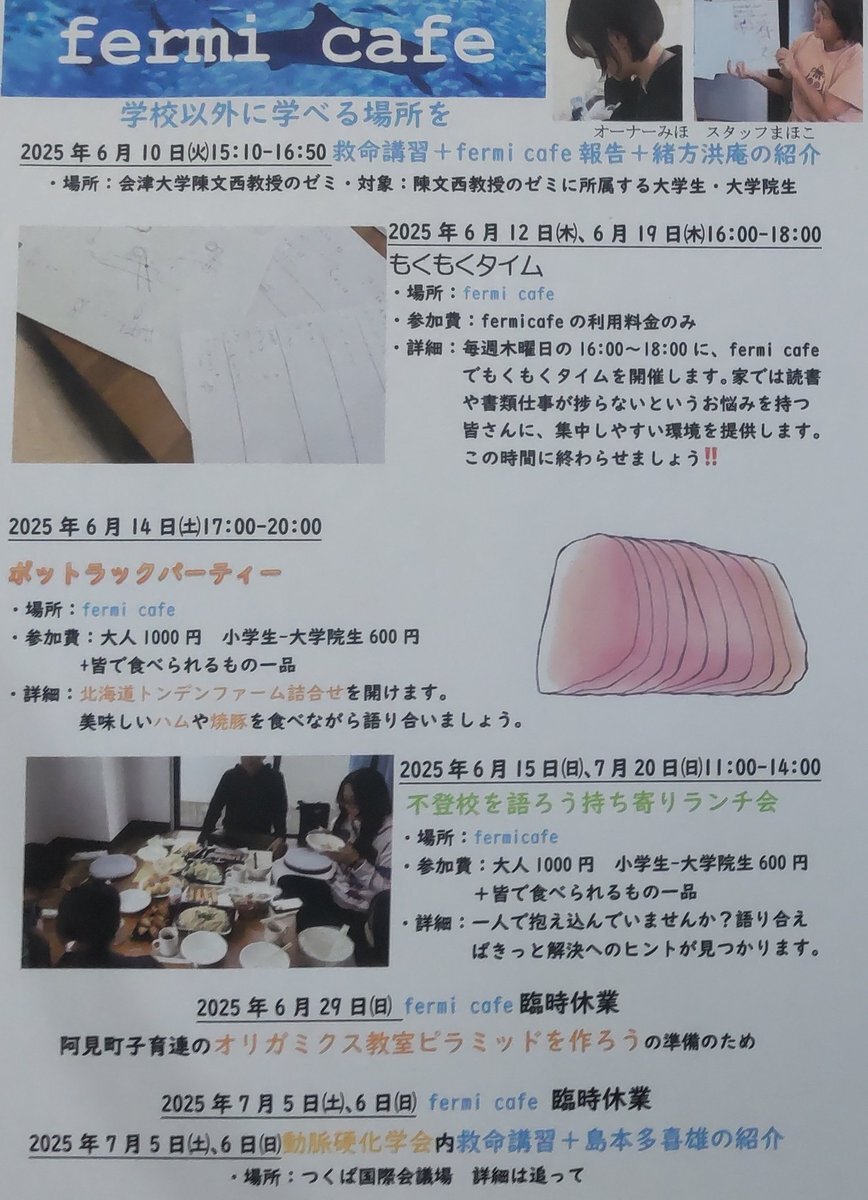 fermi cafe
学校以外に学べる場所を
オーナーみほ　スタッフまほこ
2025年6月10日㈫15:10-16:50 救命講習＋fermi cafe 報告＋緒方洪庵の紹介
・場所：会津大学陳文西教授のゼミ・対象：陳文西教授のゼミに所属する大学生・大学院生
2025年6月12日㈭、6月19日㈭16:00-18:00
もくもくタイム
・場所：fermi cafe
・参加費：fermicafeの利用料金のみ
・詳細：毎週木曜日の16:00～18:00に、fermi cafe
でもくもくタイムを開催します。家では読書
や書類仕事が捗らないというお悩みを持つ
皆さんに、集中しやすい環境を提供します。
この時間に終わらせましょう‼
2025年6月14日㈯17:00-20:00
ポットラックパーティー
・場所：fermi cafe
・参加費：大人1000円　小学生-大学院生600円
+皆で食べられるもの一品
・詳細：北海道トンデンファーム詰合せを開けます。
美味しいハムや焼豚を食べながら語り合いましょう。
2025年6月15日㈰、7月20日㈰11:00-14:00
不登校を語ろう持ち寄りランチ会
・場所：fermicafe
・参加費：大人1000円　小学生-大学院生600円
＋皆で食べられるもの一品
・詳細：一人で抱え込んでいませんか？語り合え
ばきっと解決へのヒントが見つかります。
2025年6月29日㈰ fermi cafe 臨時休業
阿見町子育連のオリガミクス教室ピラミッドを作ろうの準備のため
2025年7月5日㈯、6日㈰ fermi cafe 臨時休業
2025年7月5日㈯、6日㈰動脈硬化学会内救命講習＋島本多喜雄の紹介
・場所：つくば国際会議場　詳細は追って